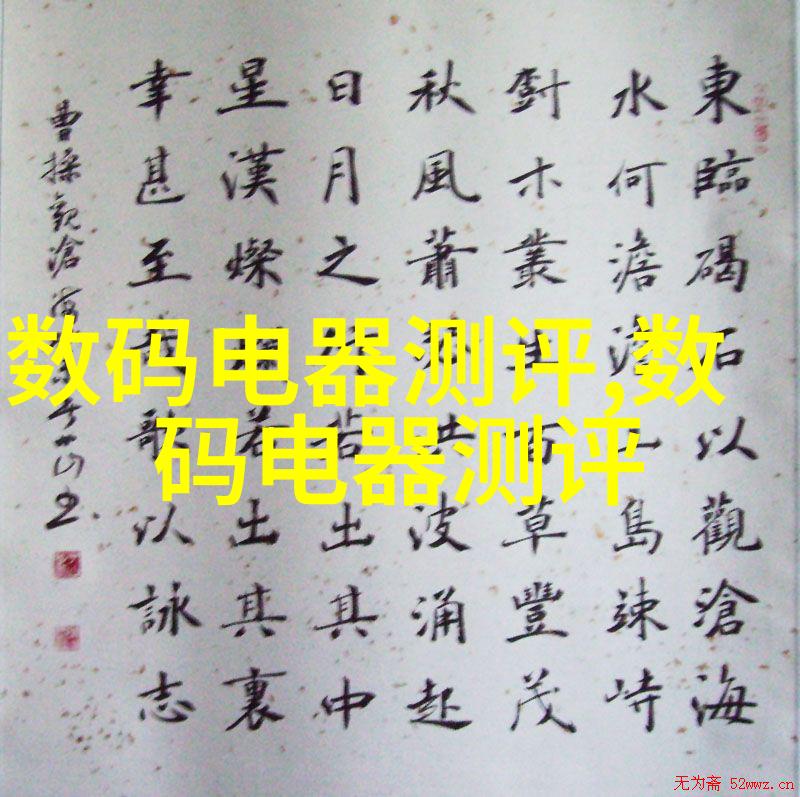 東臨碣石以觀滄海
水何澹澹山島竦峙
木叢生百草豐茂
秋風蕭瑟洪波涌起
日月之行若出其中
星漢燦爛若出其裏
幸甚至哉歌以詠志
曹操觀滄海
数码电器测评,数
码电器测评
无为斋 52wwz.cn